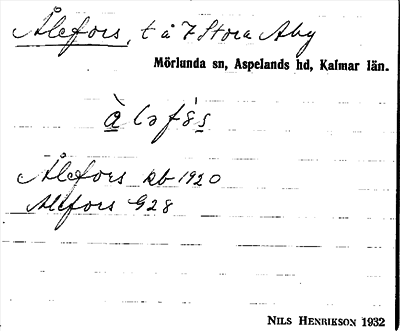 Ålefors, t å 7 Stora Aby
Mörlunda sn, Aspelands hd, Kalmar län.
à ləfʹs̱
Ålefors kb 1920
Alefors G28
NILS HENRIKSON 1932